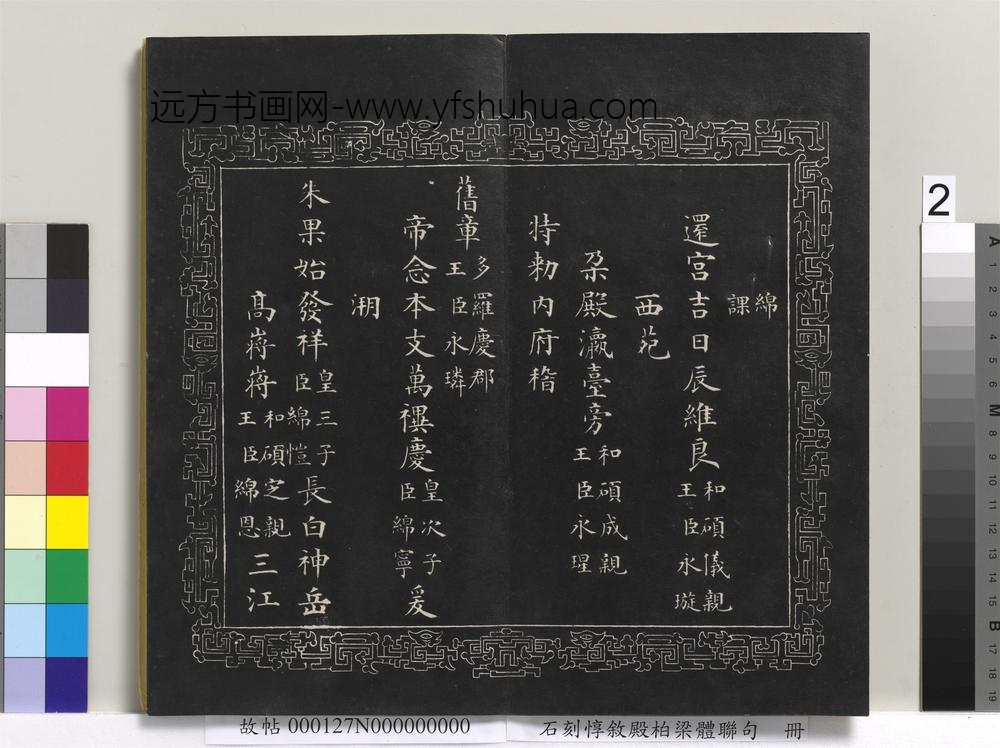 远方书画网-www.yfshuhua.com
綿課
還宮吉日辰維良和碩儀親王臣永璇
西苑
朶殿瀛臺旁和碩成親王臣永瑆
特勅内府稽
舊章多羅慶郡王臣永璘
帝念本支萬禩慶皇次子臣綿寧爰
溯
朱果始發祥皇三子臣綿愷長白神岳
高嶈嶈和碩定親王臣綿恩三江
2
A
1
2
3
4
5
6
M
8
9
10
11
12
13
14
15
B
17
18
19
故帖 000127N000000000
石刻惇敘殿柏梁體聯句 冊